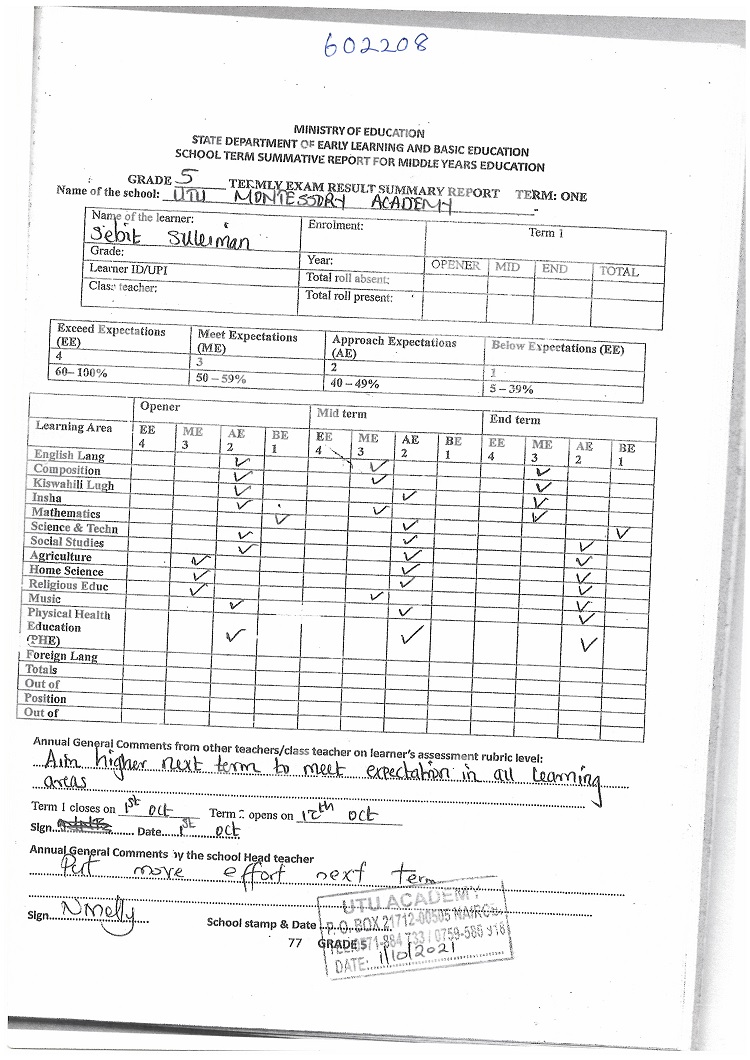 602208
MINISTRY OF EDUCATION
STATE DEPARTMENT OF EARLY LEARNING AND BASIC EDUCATION
SCHOOL TERM SUMMATIVE REPORT FOR MIDDLE YEARS EDUCATION
GRADE 5 TERMLY EXAM RESULT SUMMARY REPORT TERM: ONE
Name of the school: UTU MONTESSORY ACADEMY
Name of the learner: Enrolment: Term 1
Sebit Suleiman
Grade: Year: OPENER MID END TOTAL
Learner ID/UPI Total roll absent:
Class teacher: Total roll present:
Exceed Expectations (EE) Meet Expectations (ME) Approach Expectations (AE) Below Expectations (EE)
4 3 2 1
60–100% 50 – 59% 40 – 49% 5 – 39%
Learning Area Opener Mid term End term
EE 4 ME 3 AE 2 BE 1 EE 4 ME 3 AE 2 BE 1 EE 4 ME 3 AE 2 BE 1
English Lang ✓ ✓ ✓
Composition ✓ ✓ ✓
Kiswahili Lugh ✓ ✓ ✓
Insha ✓ ✓ ✓
Mathematics ✓ ✓ ✓
Science & Techn ✓ ✓ ✓
Social Studies ✓ ✓ ✓
Agriculture ✓ ✓ ✓
Home Science ✓ ✓ ✓
Religious Educ ✓ ✓ ✓
Music ✓ ✓ ✓
Physical Health Education (PHE) ✓ ✓ ✓
Foreign Lang
Totals
Out of
Position
Out of
Annual General Comments from other teachers/class teacher on learner's assessment rubric level:
Aim higher next term to meet expectation in all learning
areas
Term 1 closes on 1st Oct Term 2 opens on 12th Oct
Sign Date 1st Oct
Annual General Comments by the school Head teacher
Put more effort next term
Sign NMelly School stamp & Date
UTU ACADEMY
P. O. BOX 21712-00505 NAIROBI
77 GRADE 5
DATE: 1/10/2021